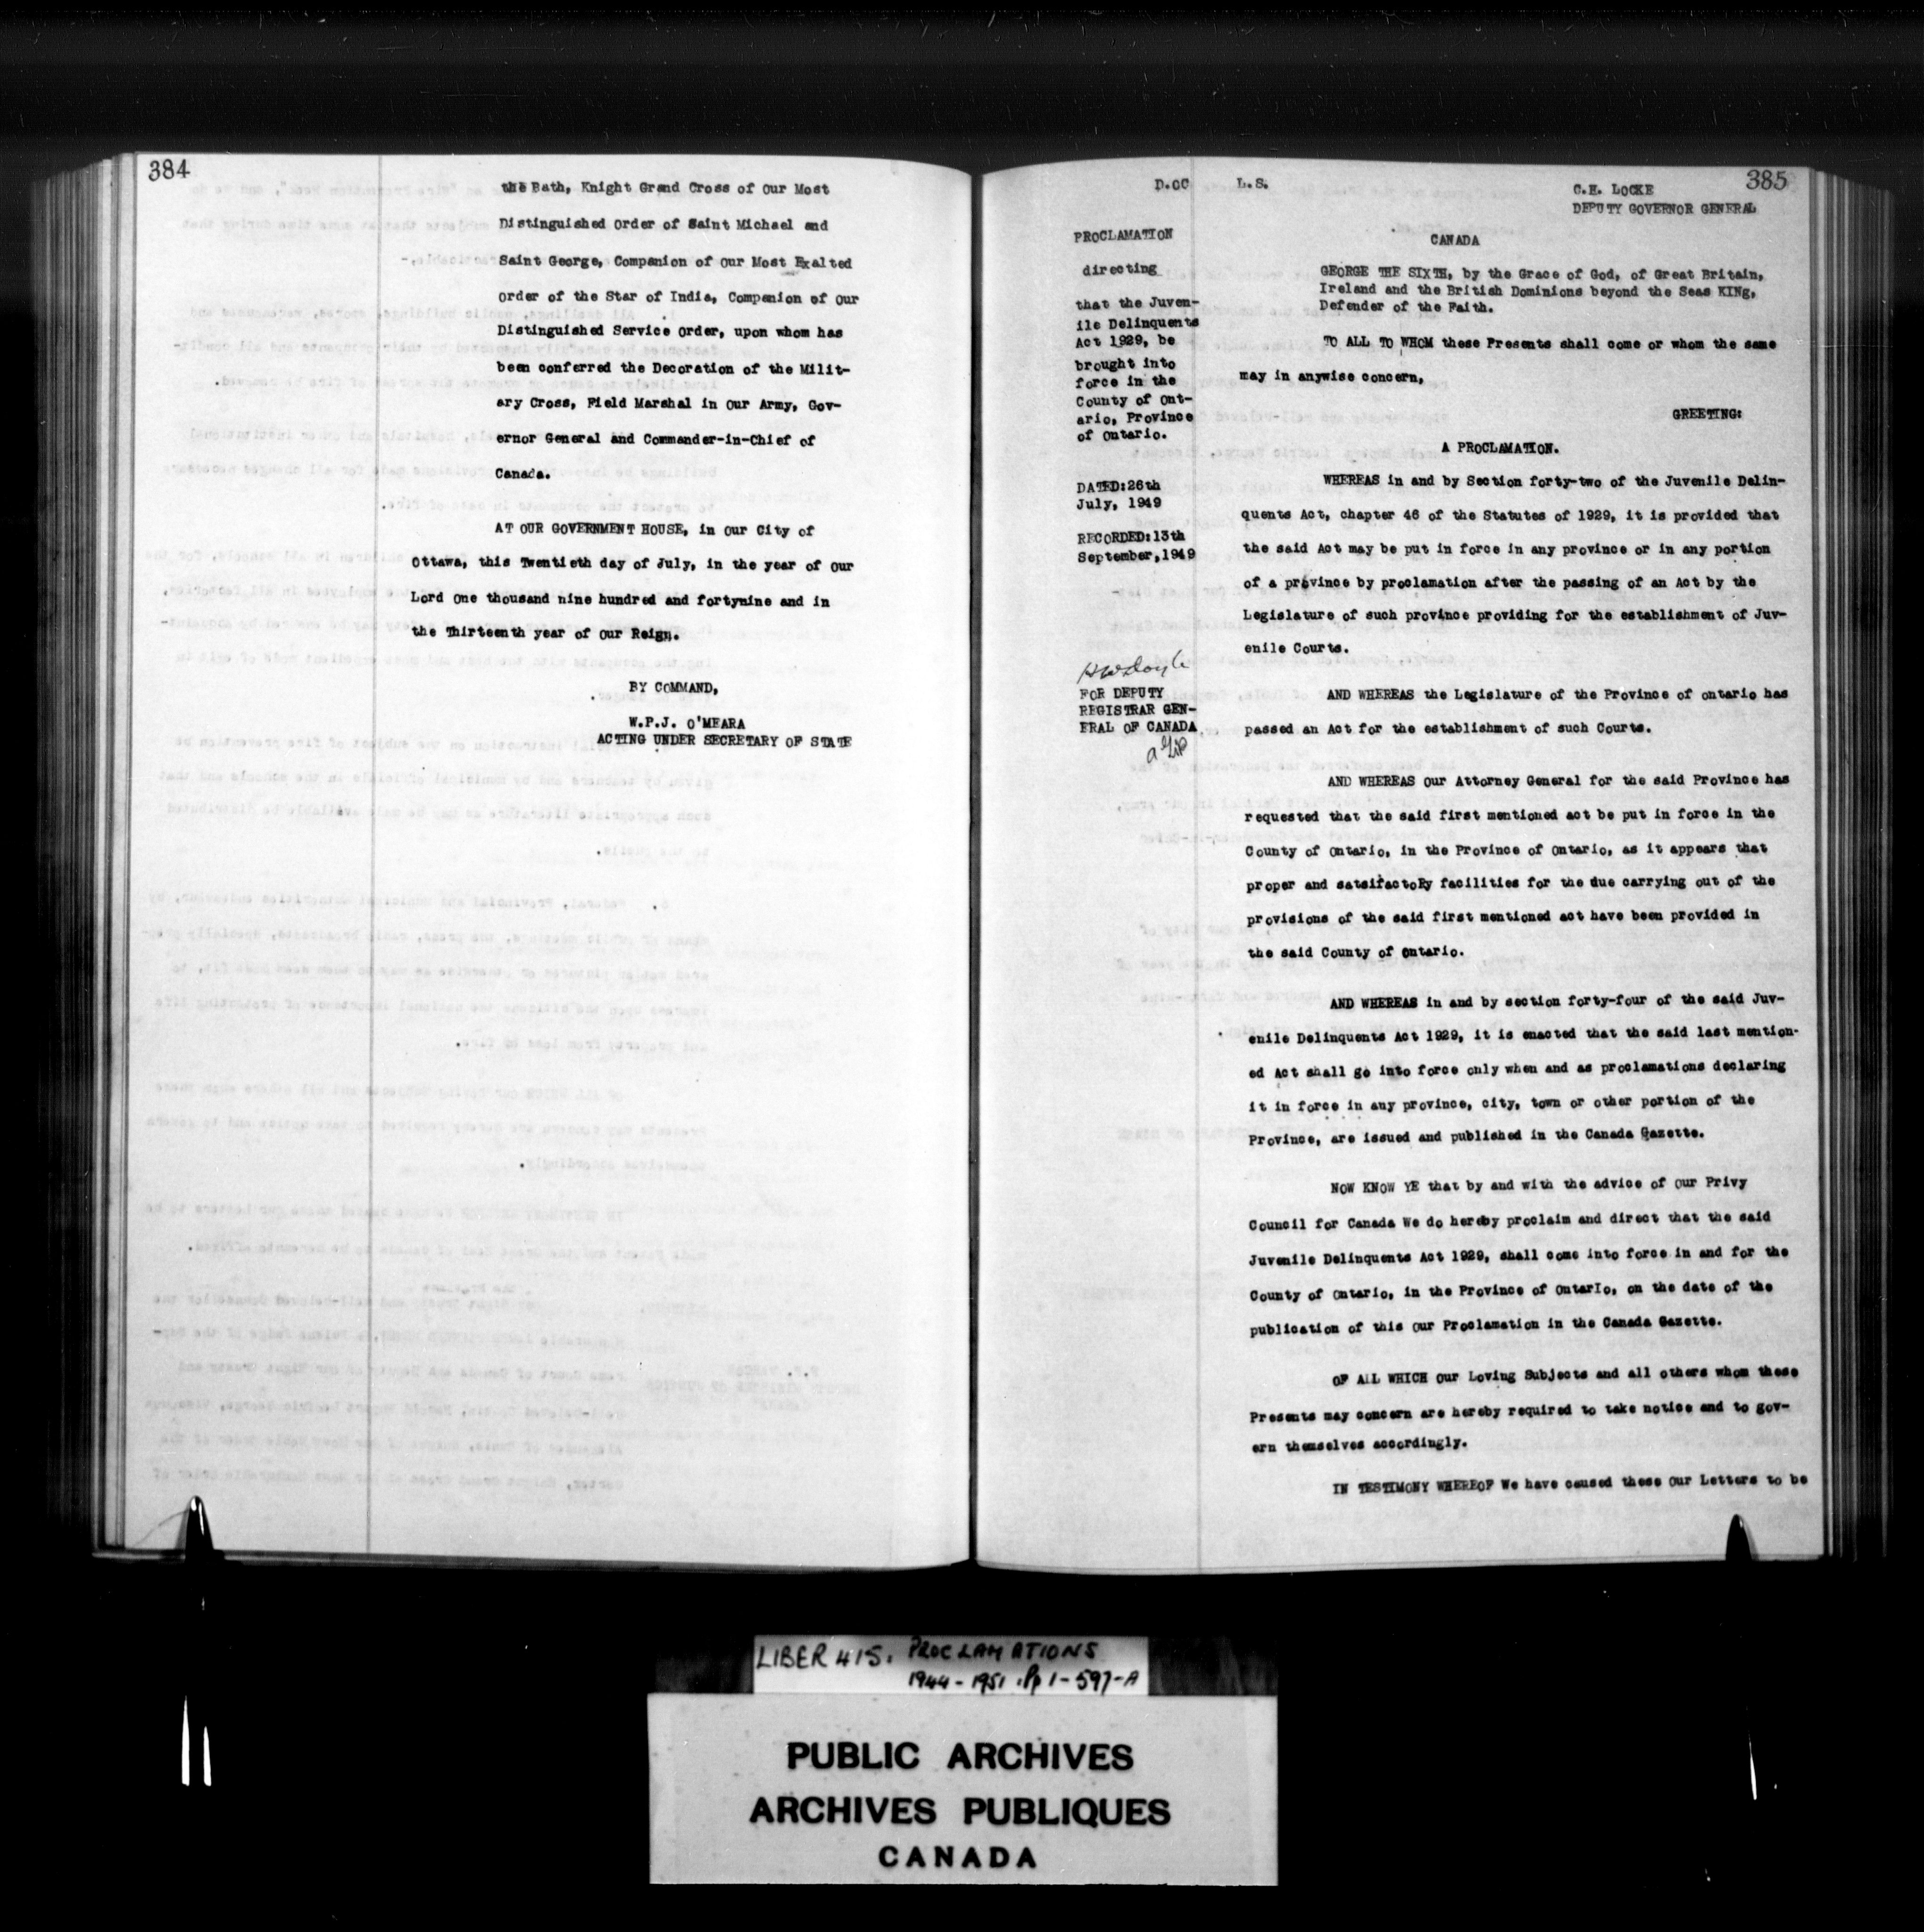 384
the Bath, Knight Grand Cross of Our Most
Distinguished Order of Saint Michael and
Saint George, Companion of Our Most Exalted
Order of the Star of India, Companion of Our
Distinguished Service Order, upon whom has
been conferred the Decoration of the Milit-
ary Cross, Field Marshal in Our Army, Gov-
ernor General and Commander-in-Chief of
Canada.
AT OUR GOVERNMENT HOUSE, in Our City of
Ottawa, this Twentieth day of July, in the year of Our
Lord One thousand nine hundred and fortynine and in
the Thirteenth year of Our Reign.
BY COMMAND,
W.P.J. O'MEARA
ACTING UNDER SECRETARY OF STATE
385
D.OC
L.S.
C.H. LOCKE
DEPUTY GOVERNOR GENERAL
PROCLAMATION
directing
that the Juven-
ile Delinquents
Act 1929, be
brought into
force in the
County of Ont-
ario, Province
of Ontario.
DATED:26th
July, 1949
RECORDED:13th
September,1949
FOR DEPUTY
REGISTRAR GEN-
ERAL OF CANADA
CANADA
GEORGE THE SIXTH, by the Grace of God, of Great Britain,
Ireland and the British Dominions beyond the Seas KINg,
Defender of the Faith.
TO ALL TO WHOM these Presents shall come or whom the same
may in anywise concern,
GREETING:
A PROCLAMATION.
WHEREAS in and by Section forty-two of the Juvenile Delin-
quents Act, chapter 46 of the Statutes of 1929, it is provided that
the said Act may be put in force in any province or in any portion
of a province by proclamation after the passing of an Act by the
Legislature of such province providing for the establishment of Juv-
enile Courts.
AND WHEREAS the Legislature of the Province of Ontario has
passed an Act for the establishment of such Courts.
AND WHEREAS Our Attorney General for the said Province has
requested that the said first mentioned act be put in force in the
County of Ontario, in the Province of Ontario, as it appears that
proper and satsifactoRy facilities for the due carrying out of the
provisions of the said first mentioned act have been provided in
the said County of Ontario.
AND WHEREAS in and by section forty-four of the said Juv-
enile Delinquents Act 1929, it is enacted that the said last mention-
ed Act shall go into force only when and as proclamations declaring
it in force in any province, city, town or other portion of the
Province, are issued and published in the Canada Gazette.
NOW KNOW YE that by and with the advice of Our Privy
Council for Canada We do hereby proclaim and direct that the said
Juvenile Delinquents Act 1929, shall come into force in and for the
County of Ontario, in the Province of OntarIo, on the date of the
publication of this Our Proclamation in the Canada Gazette.
OF ALL WHICH Our Loving Subjects and all others whom these
Presents may concern are hereby required to take notice and to gov-
ern themselves accordingly.
IN TESTIMONY WHEREOF We have caused these Our Letters to be
LIBER 415. PROCLAMATIONS
1944-1951. Pp 1-597-A
PUBLIC ARCHIVES
ARCHIVES PUBLIQUES
CANADA